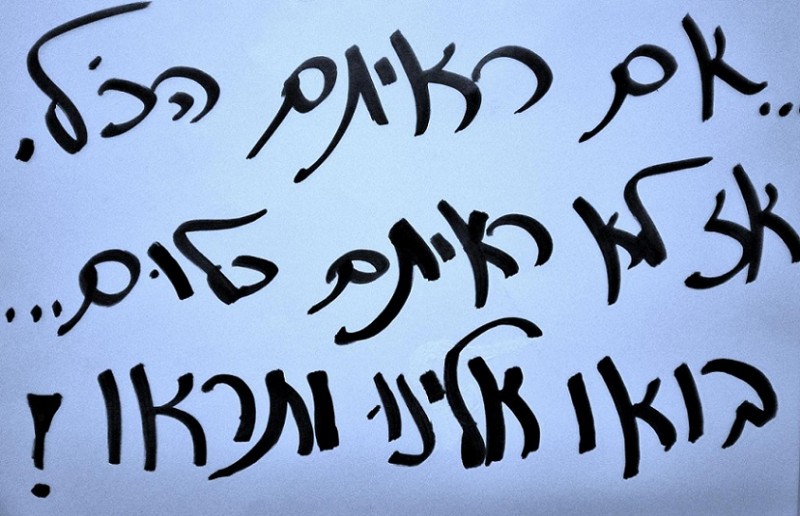 ...אם ראיתם הכל.
אז לא ראיתם כלום...
בואו אלינו ותראו!